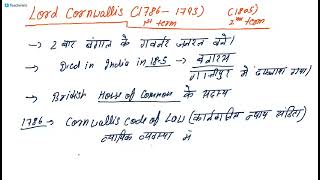 Teachmint
Lord Cornwallis (1786-1793) (1805)
Ist term 2nd term
→ 2 बार बंगाल के गवर्नर जनरल बने।
→ Died in India in 1805 → बनारस
गाजीपुर में दफनाया गया)
→ British House of Commons के सदस्य
1786 → Cornwallis Code of Law (कार्नवालिस न्याय संहिता)
न्यायिक व्यवस्था में